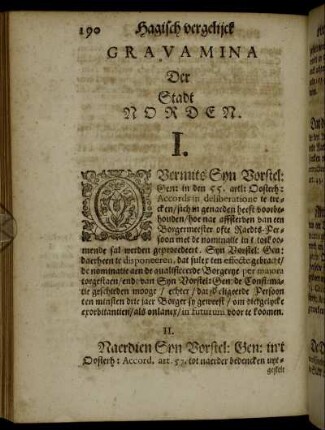 190 Hagisch vergelijck
GRAVAMINA
Der
Stadt
NORDEN.
I.
OVermits Syn Vorstel:
Gen: in den 55. artl: Oosterh:
Accords in deliberatione te trec-
ken/sich in genaeden heeft voorbe-
houden/hoe nae afsterven van een
Borgermeister ofte Raedts-Per-
soon met de nominatie in
mende sal werden geprocedeert. Syn Vorstel: Gen:
daerheen te disponeren, dat sulcx ten effecte gebracht/
de nominatie aen de qualificeerde Borgerye per majora
toegestaen/ende van Syn Vorstel: Gen: de Confirma-
tie geschieden moge/ echter/ dat Persoon
ten minsten drie jaer Borger sy geweest/ om diergelijcke
exorbitantien/als onlanx/in futurum voor te koomen.
II.
Naerdien Syn Vorstel: Gen: in't
Oosterh: Accord. art 57. tot naerder bedencken uyt-
gestelt